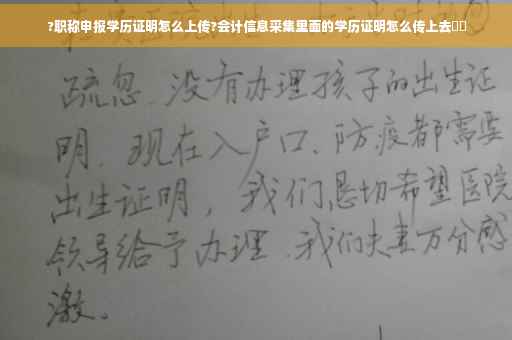 ?职称申报学历证明怎么上传?会计信息采集里面的学历证明怎么传上去
疏忽、没有办理孩子的出生证
明、现在入户口、防疫都需要
出生证明，我们恳切希望医院
领导给予办理、我们夫妻万分感
激。